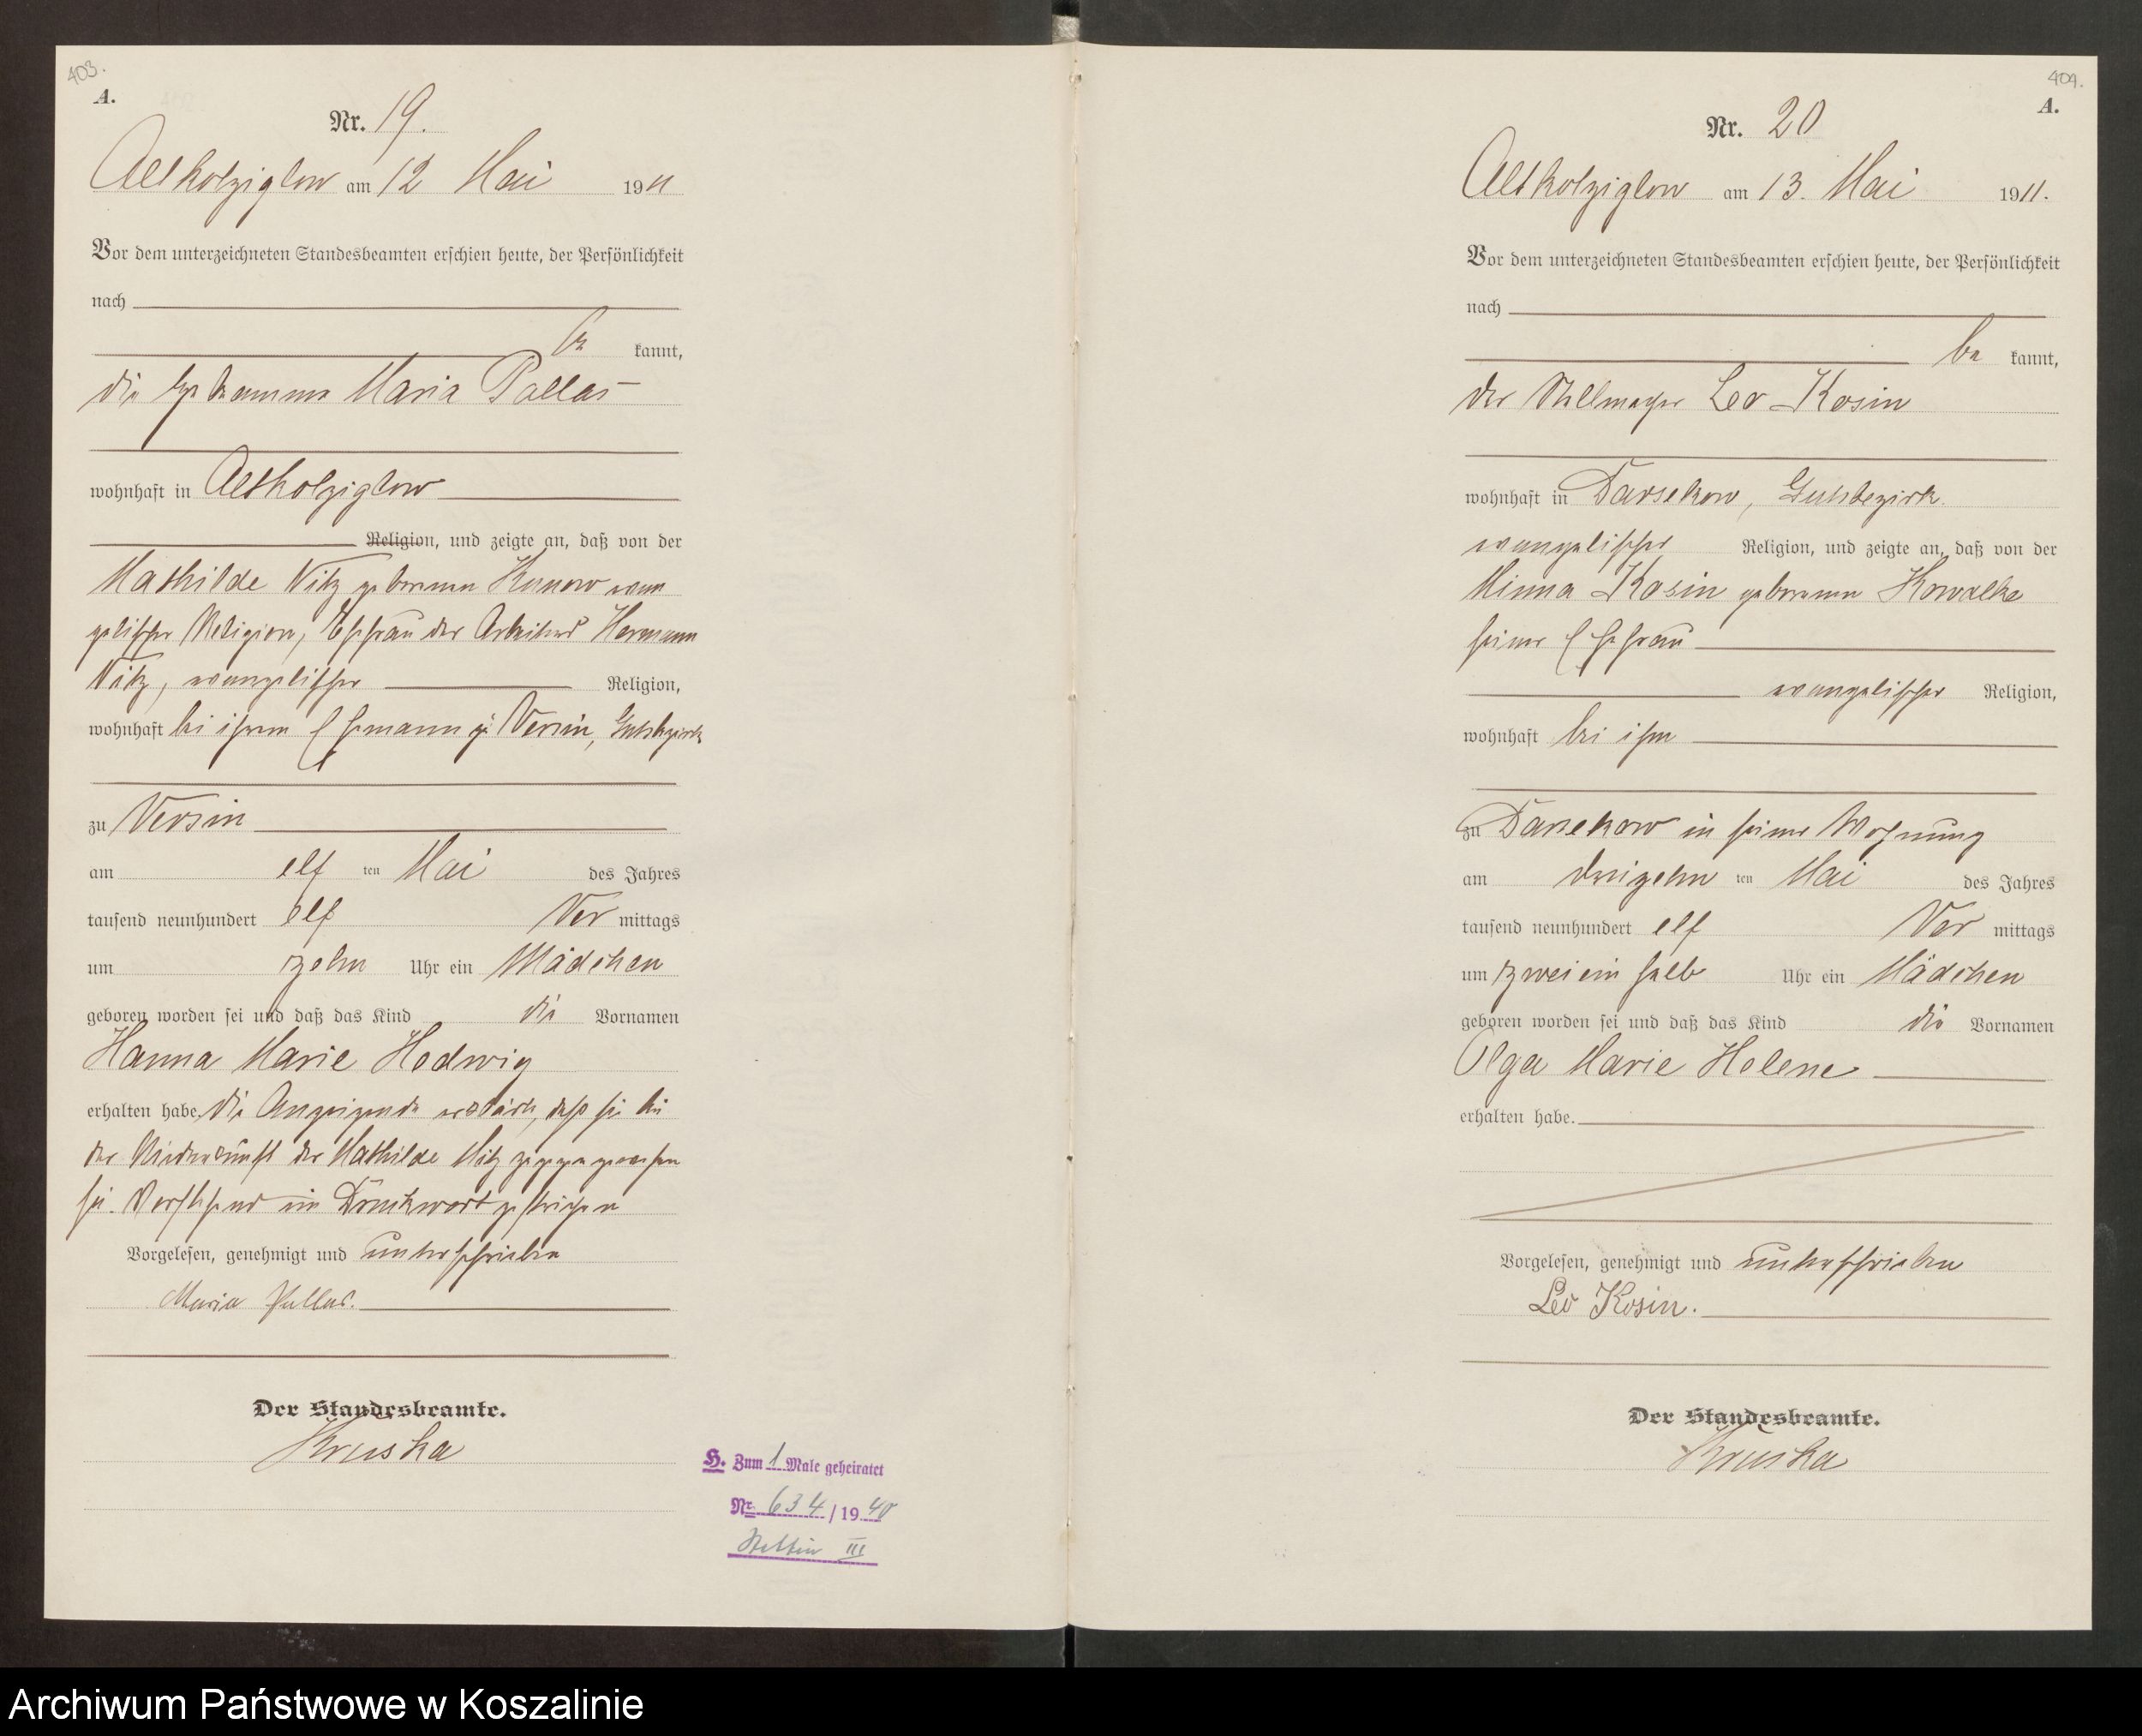 403.
A.
Nr. 19.
Altkolziglow am 12 Mai 1911
Vor dem unterzeichneten Standesbeamten erschien heute, der Persönlichkeit
nach
be kannt,
die Hebamme Maria Pallas
wohnhaft in Altkolziglow
Religion, und zeigte an, daß von der
Mathilde Nitz geborenen Kunow evan
gelischer Religion, Ehefrau des Arbeiters Hermann
Nitz, evangelischer Religion,
wohnhaft bei ihrem Ehemann zu Versin, Gutsbezirk
zu Versin
am elf ten Mai des Jahres
tausend neunhundert elf Vor mittags
um zehn Uhr ein Mädchen
geboren worden sei und daß das Kind die Vornamen
Hanna Marie Hedwig
erhalten habe. Die Anzeigende erklärte, daß sie bei
der Niederkunft der Mathilde Nitz zugegen gewesen
sei. Vorstehend ein Druckwort gestrichen
Vorgelesen, genehmigt und unterschrieben
Maria Pallas.
Der Standesbeamte.
Kruska
H. Zum 1 Male geheiratet
Nr. 634/1940
Stettin III
404.
A.
Nr. 20
Altkolziglow am 13. Mai 1911.
Vor dem unterzeichneten Standesbeamten erschien heute, der Persönlichkeit
nach
be kannt,
der Stellmacher Leo Kosin
wohnhaft in Darsekow, Gutsbezirk.
evangelischer Religion, und zeigte an, daß von der
Minna Kosin geborenen Kowalke
seiner Ehefrau
evangelischer Religion,
wohnhaft bei ihm
zu Darsekow in seiner Wohnung
am dreizehn ten Mai des Jahres
tausend neunhundert elf Vor mittags
um zweiein halb Uhr ein Mädchen
geboren worden sei und daß das Kind die Vornamen
Olga Marie Helene
erhalten habe.
Vorgelesen, genehmigt und unterschrieben
Leo Kosin.
Der Standesbeamte.
Kruska
Archiwum Państwowe w Koszalinie